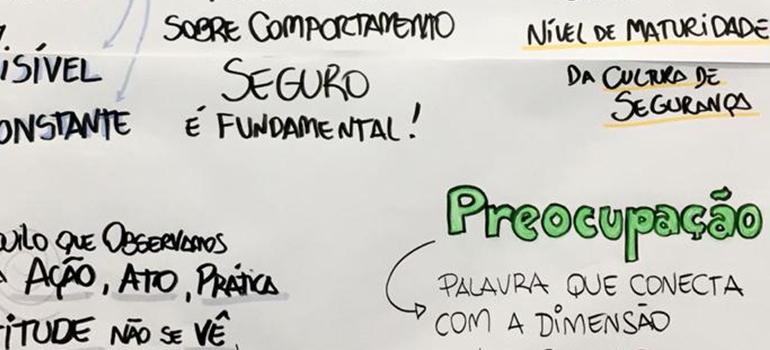 SOBRE COMPORTAMENTO
SEGURO
É FUNDAMENTAL!
NÍVEL DE MATURIDADE
DA CULTURA DE
SEGURANÇA
QUE OBSERVAMOS
AÇÃO, ATO, PRÁTICA
NÃO SE VÊ
Preocupação
PALAVRA QUE CONECTA
COM A DIMENSÃO